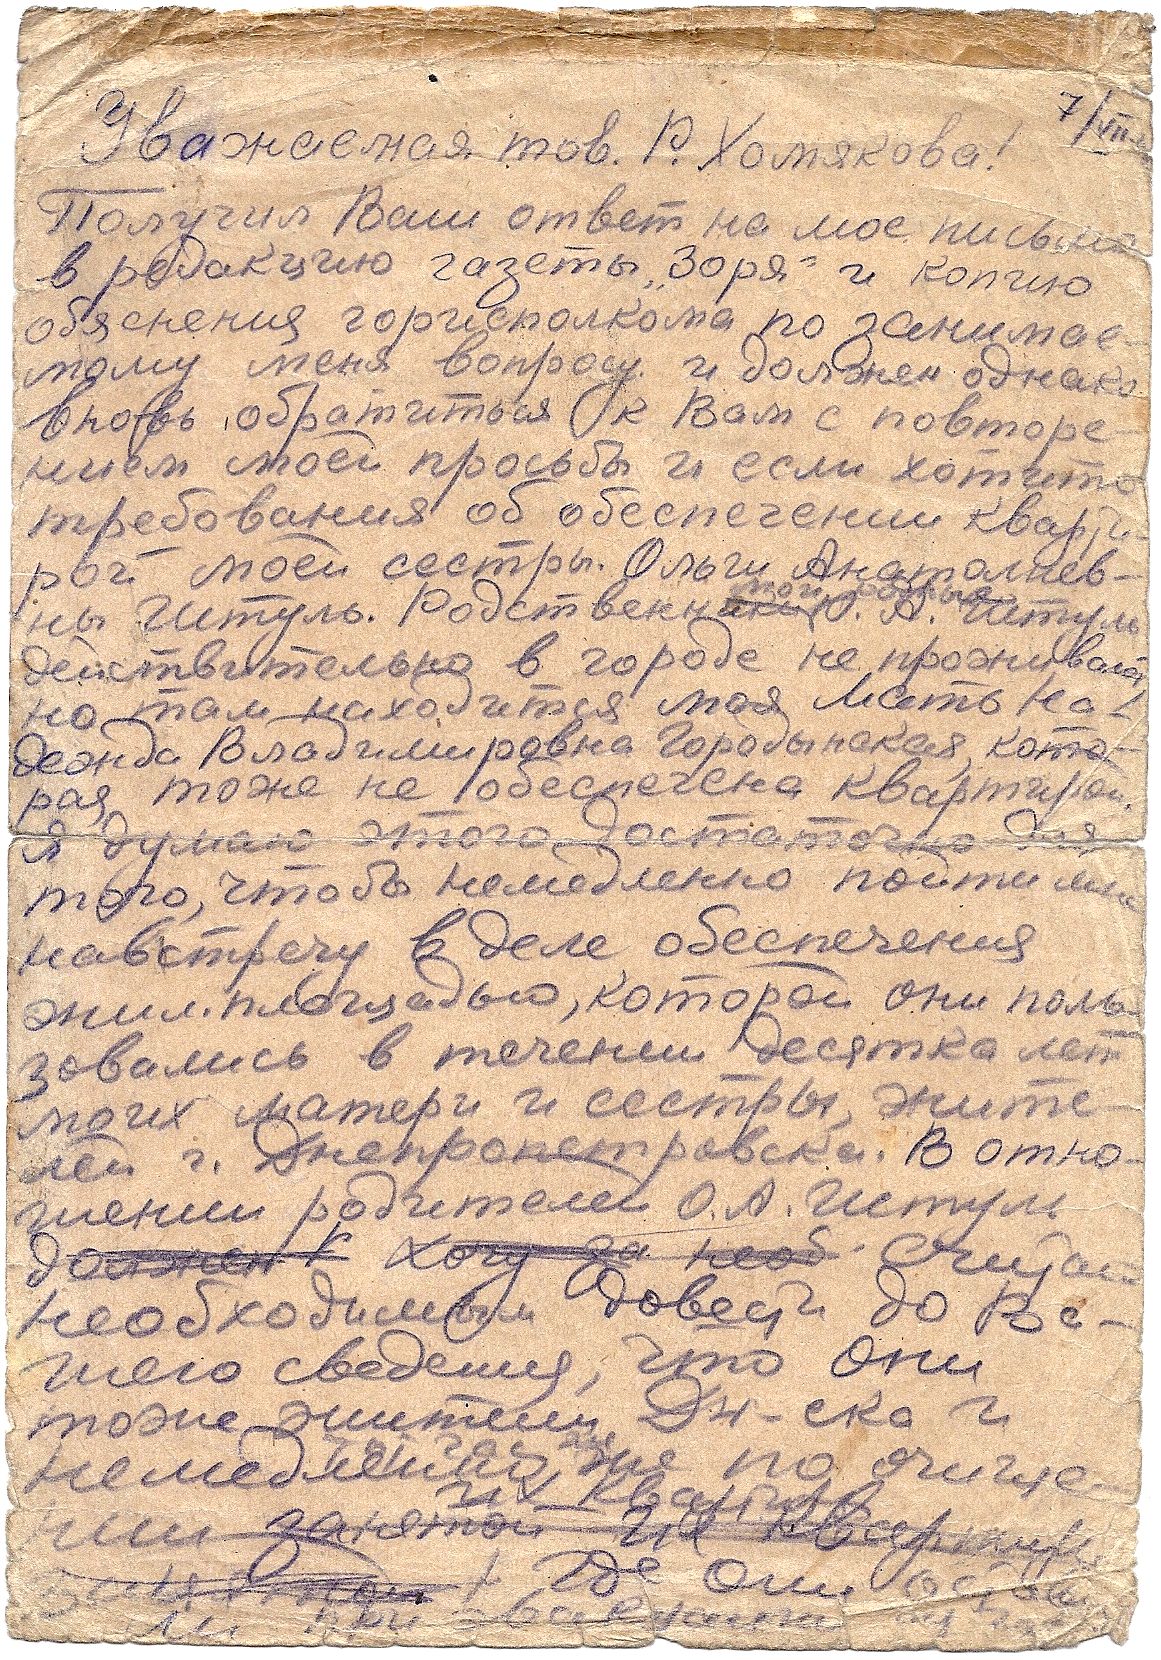 7/VIII
Уважаемая тов. Р. Хомякова!
Получил Ваш ответ на мое письмо
в редакцию газеты „Зоря“ и копию
обяснения горисполкома по занимае-
мому меня вопросу и должен однако
вновь обратиться к Вам с повторе-
нием моей просьбы и если хотите
требования об обеспечении кварти-
рой моей сестры Ольги Анатолиев-
ны Иштуль. Родственники О. А. Иштуль
действительно в городе не проживают
но там находится моя Мать На-
дежда Владимировна Городынская, кото-
рая тоже не обеспечена квартирой.
Я думаю этого достаточно для
того, чтобы немедленно пойти мне
навстречу в деле обеспечения
жил. площадью, которой они поль-
зовались в течении десятка лет
моих матери и сестры, жите-
лей г. Днепропетровска. В отно-
шении родителей О. А. Иштуль
должен Хочу за необ. Считаю
необходимым довести до Ва-
шего сведения, что они
тоже жители Дн-ска и
немедленно же по очище
их квартиры
нии занятой их квартиры
где они остави
ли при эвакуации